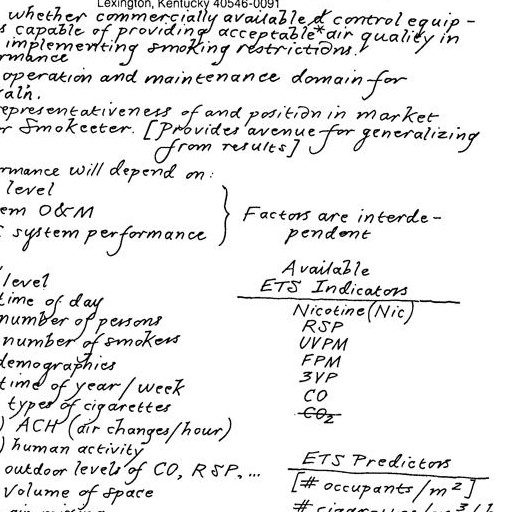 Lexington, Kentucky 40546-0091
whether commercially available control equip-
s capable of providing acceptable* air quality in
implementing smoking restrictions.
rmance
operation and maintenance domain for
epresentativeness of and position in market
r Smokeeter. [Provides avenue for generalizing
from results]
rmance will depend on:
level
em O&M
system performance
Factors are interde-
pendent
Available
ETS Indicators
level
time of day
number of persons
number of smokers
demographics
time of year/week
types of cigarettes
) ACH (air changes/hour)
) human activity
outdoor levels of CO, RSP, ...
volume of space
air mixing
Nicotine (Nic)
RSP
UVPM
FPM
3VP
CO
CO2
ETS Predictors
[# occupants/m2]